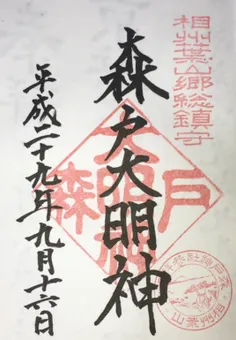 相州葉山郷総鎮守
森戸大明神
平成二十九年九月十六日
森 戸